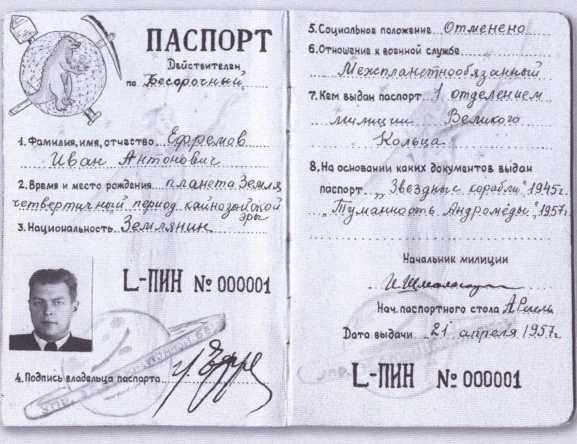 ПАСПОРТ
Действителен
по Бессрочный
1. Фамилия, имя, отчество Ефремов
Иван Антонович
2. Время и место рождения планета Земля
четвертичный период кайнозойской
эры
3. Национальность Землянин
L-ПИН № 000001
4. Подпись владельца паспорта
5. Социальное положение Отменено
6. Отношение к военной службе
Межпланетнообязанный
7. Кем выдан паспорт 1 отделением
милиции Великого
Кольца
8. На основании каких документов выдан
паспорт „Звездные корабли" 1945г.
„Туманность Андромеды", 1957г.
Начальник милиции
Нач. паспортного стола
Дата выдачи 21 апреля 1957г.
L-ПИН № 000001